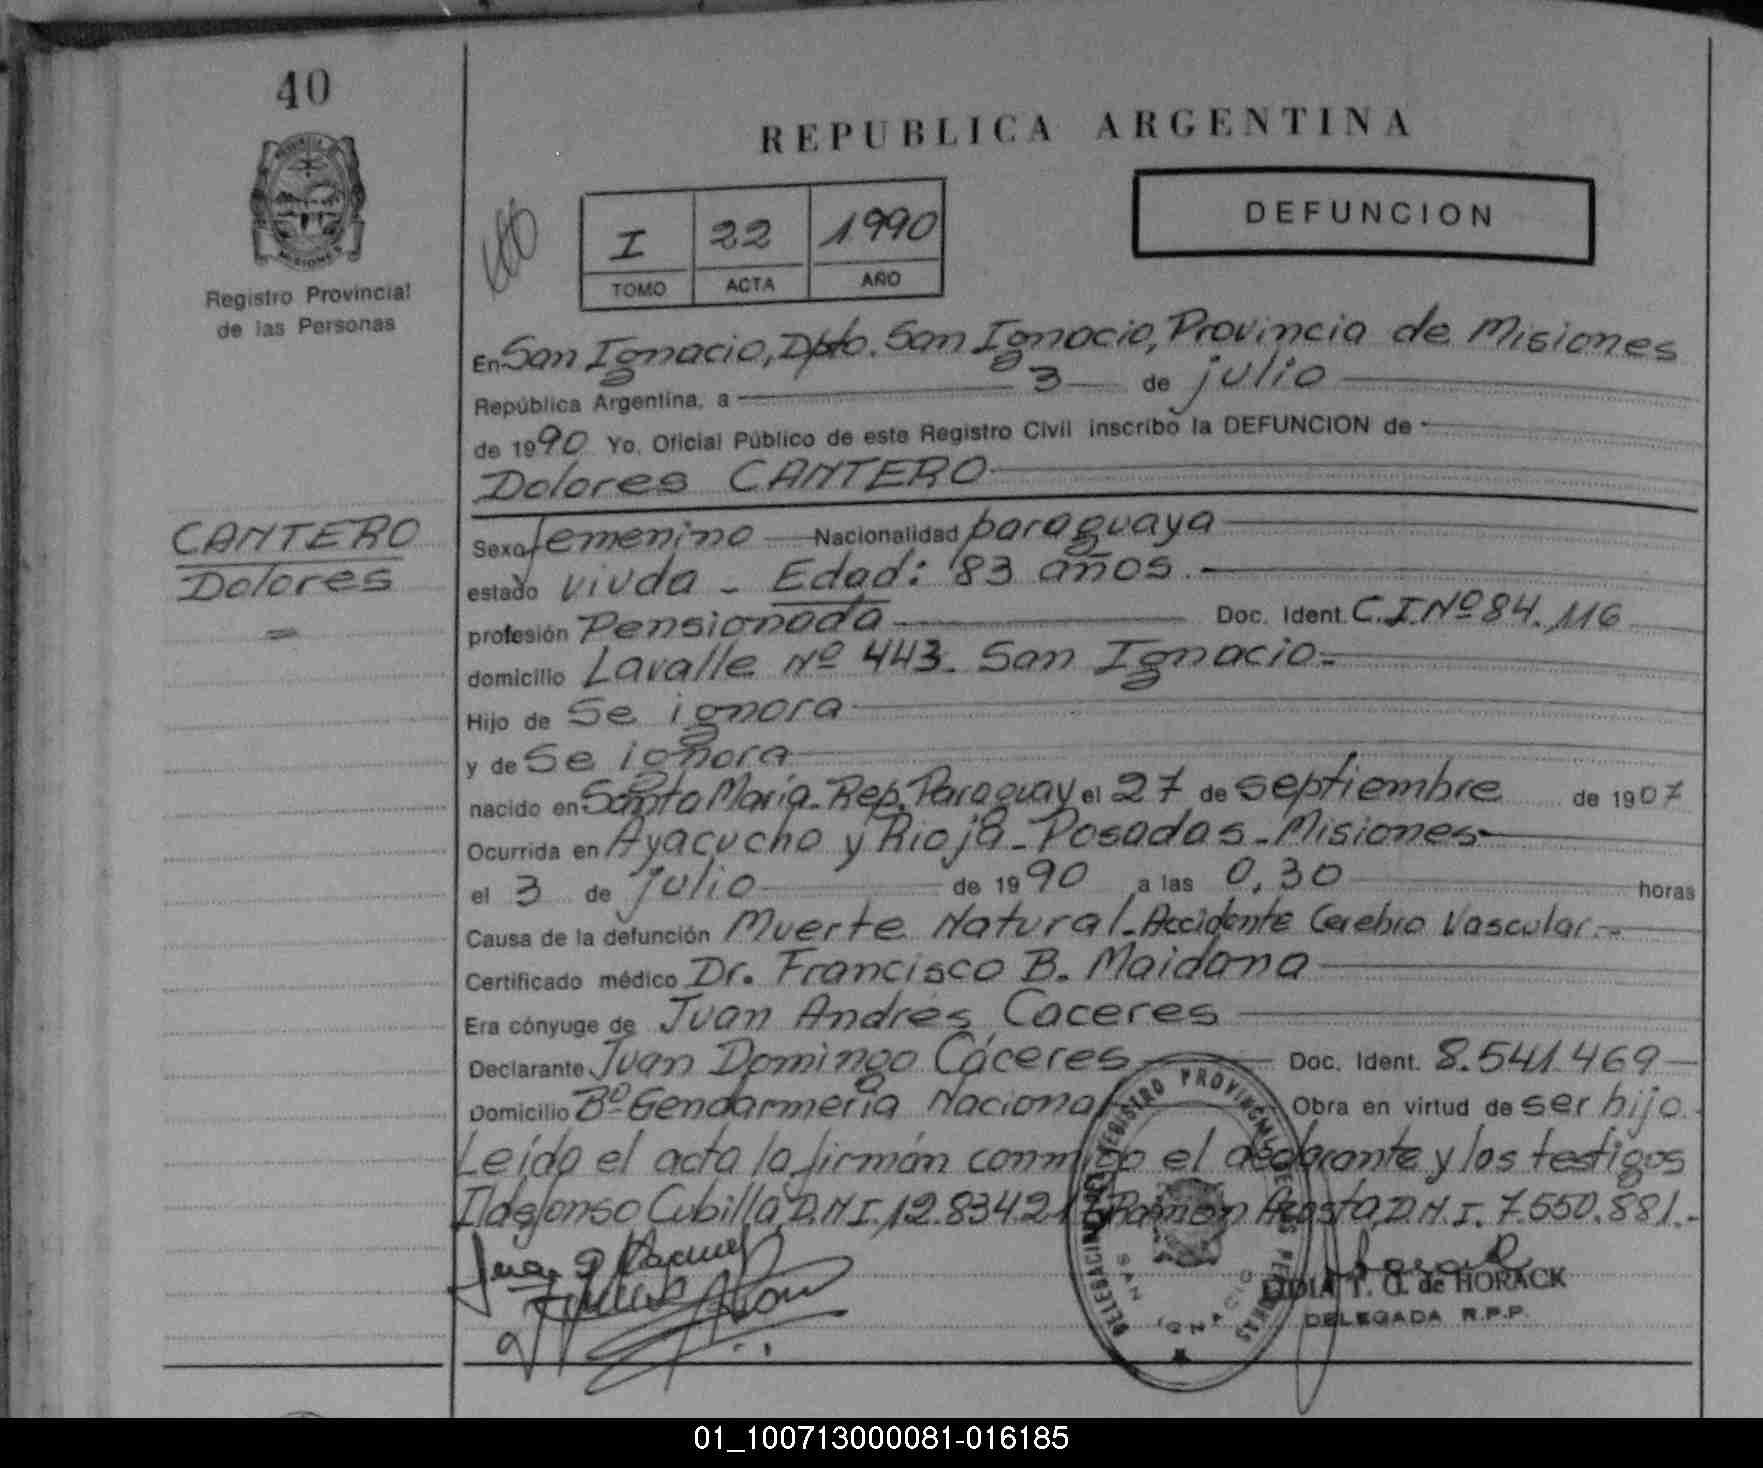 40
REPUBLICA ARGENTINA
DEFUNCION
I 22 1990
TOMO ACTA AÑO
MISIONES
Registro Provincial
de las Personas
En San Ignacio, Dpto. San Ignacio, Provincia de Misiones
República Argentina, a 3 de julio
de 1990 Yo, Oficial Público de este Registro Civil inscribo la DEFUNCION de
Dolores CANTERO
CANTERO
Dolores
Sexo femenino Nacionalidad paraguaya
estado viuda - Edad: 83 años.
profesión Pensionada Doc. Ident. C.I.Nº 84.116
domicilio Lavalle Nº 443. San Ignacio.
Hijo de Se ignora
y de Se ignora
nacido en Santa María. Rep. Paraguay el 27 de septiembre de 1907
Ocurrida en Ayacucho y Rioja - Posadas - Misiones
el 3 de julio de 1990 a las 0,30 horas
Causa de la defunción Muerte Natural. Accidente Cerebro Vascular.
Certificado médico Dr. Francisco B. Maidana
Era cónyuge de Juan Andrés Caceres
Declarante Juan Domingo Cáceres Doc. Ident. 8.541.469
Domicilio Bº Gendarmería Nacional Obra en virtud de ser hijo.
Leída el acta la firmán conmigo el declarante y los testigos
Ildefonso Cubilla, D.N.I. Ramón Acosta, D.N.I. 7.550.881.-
REGISTRO PROVINCIAL DE LAS PERSONAS
DELEGACION
SAN IGNACIO
de HORACK
DELEGADA R.P.P.
01_100713000081-016185